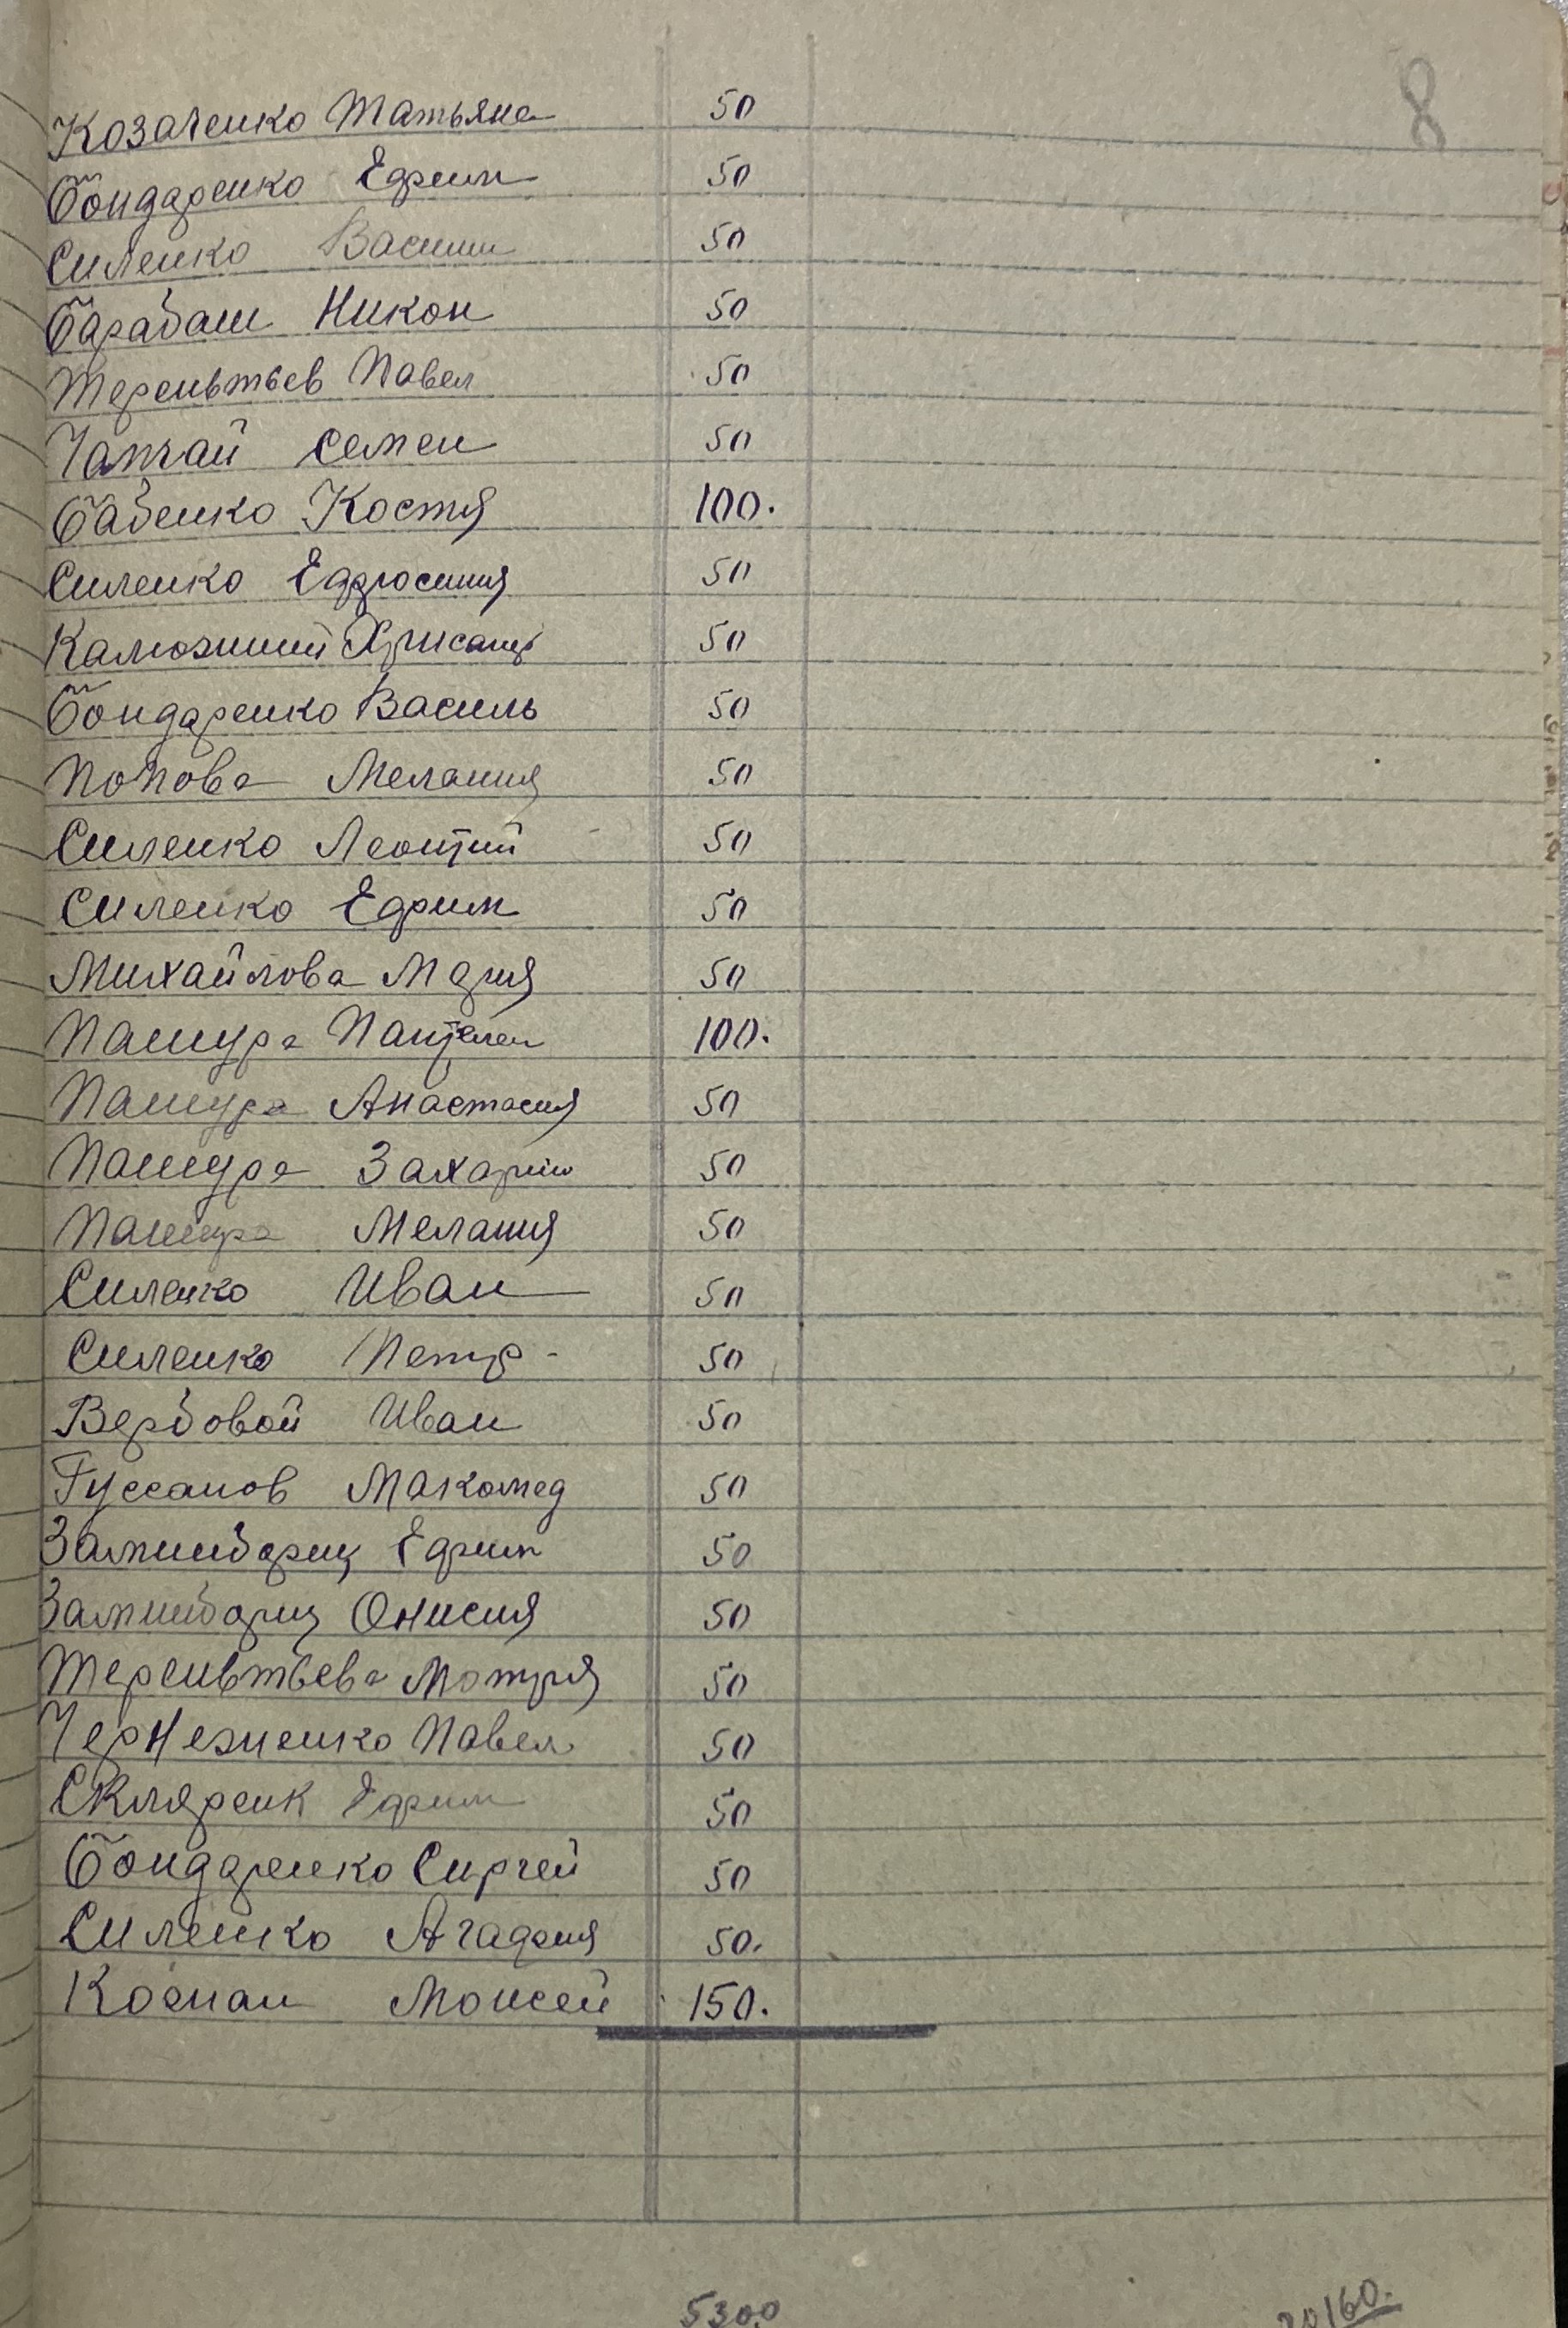 8
Козаченко Татьяна 50
Бондаренко Ефим 50
Силенко Васили 50
Барабаш Никон 50
Терентьев Павел 50
Семен 50
Бабенко Костя 100.
Силенко Ефросиния 50
Калюжний 50
Бондаренко Василь 50
Попова Мелания 50
Силенко Леонтий 50
Силенко Ефим 50
Михайлова Мария 50
Пашура Пантелеи 100.
Пашура Анастасия 50
Пашура Захарий 50
Пашура Мелания 50
Силенко Иван 50
Силенко Петр 50
Вербовой Иван 50
Гуссанов Макомед 50
Ефим 50
Онисия 50
Терентьева Мотря 50
Павел 50
Скляренк Ефим 50
Бондаренко Сиргей 50
Силенко Агафия 50.
Моисей 150.
5300
20160.